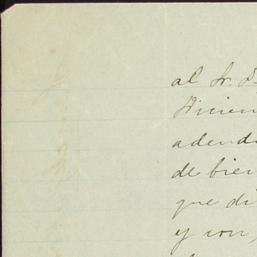 al Sr. D
adend
de bien
que di
y con